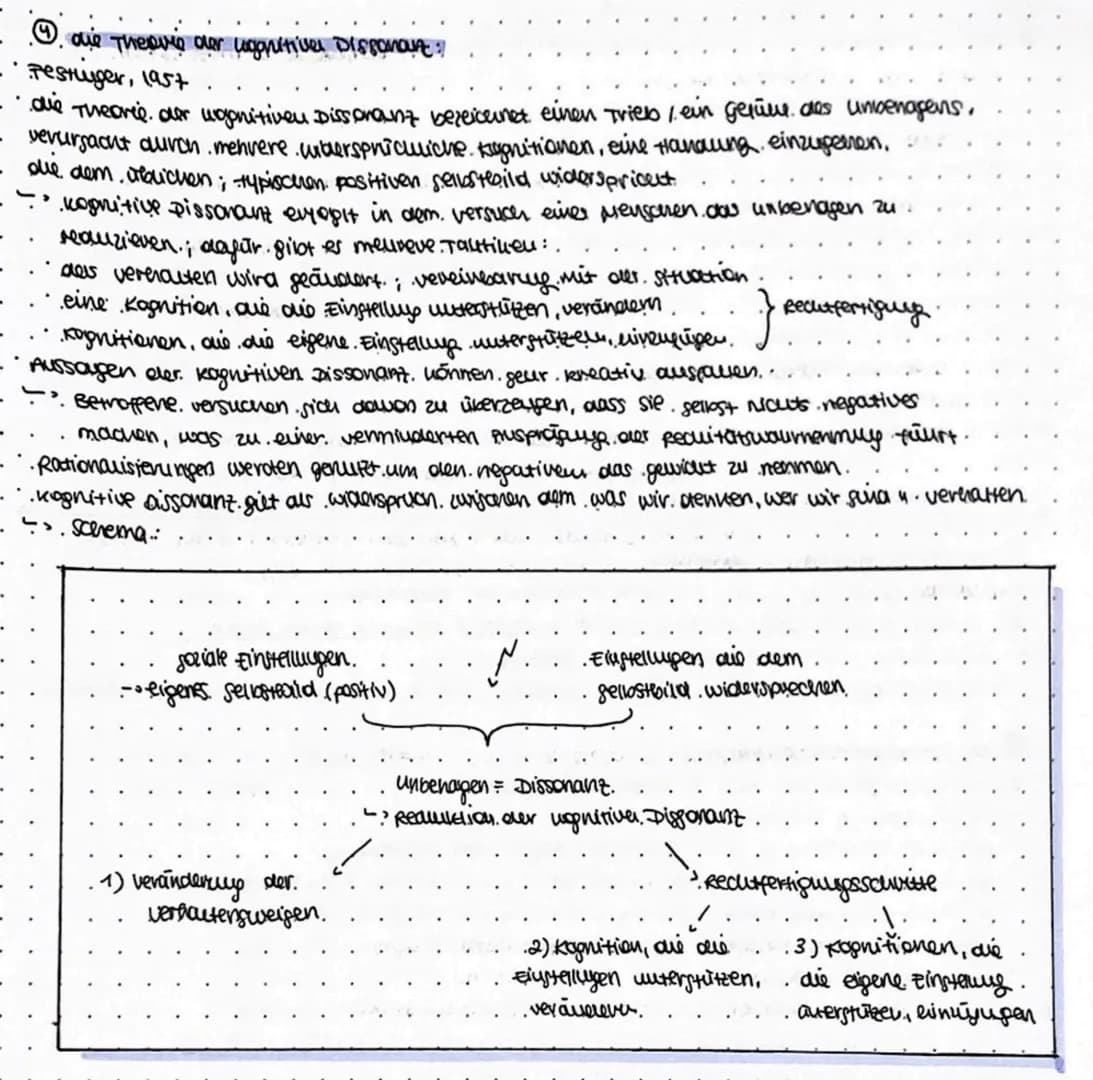 ④ die Theorie der kognitiven Dissonanz:
Festinger, 1957
die Theorie der kognitiven Dissonanz bezeichnet einen Trieb / ein Gefühl des Unbehagens,
verursacht durch mehrere widersprüchliche Kognitionen, eine Handlung einzugehen,
die dem üblichen; typischen positiven Selbstbild widerspricht
↳ kognitive Dissonanz erfolgt in dem Versuch eines Menschen das Unbehagen zu
reduzieren; dafür gibt es mehrere Taktiken:
das Verhalten wird geändert; Vereinbarung mit der Situation
eine Kognition, die die Einstellung unterstützen, verändern
} Rechtfertigung
Kognitionen, die die eigene Einstellung unterstützen, hinzufügen
Aussagen der kognitiven Dissonanz können sehr kreativ ausfallen
↳ Betroffene versuchen sich davon zu überzeugen, dass sie selbst nichts negatives
machen, was zu einer verminderten Ausprägung der Realitätswahrnehmung führt
Rationalisierungen werden genutzt um den negativen das Gewicht zu nehmen
kognitive Dissonanz gilt als Widerspruch zwischen dem was wir denken, wer wir sind u. verhalten
↳ Schema:
soziale Einstellungen
→ eigenes Selbstbild (positiv)
Einstellungen die dem
Selbstbild widersprechen
Unbehagen = Dissonanz
↳ Reduktion der kognitiven Dissonanz
1) Veränderung der
Verhaltensweisen
Rechtfertigungsschritte
2) Kognition, die die
Einstellungen unterstützen,
verändern
3) Kognitionen, die
die eigene Einstellung
unterstützen,